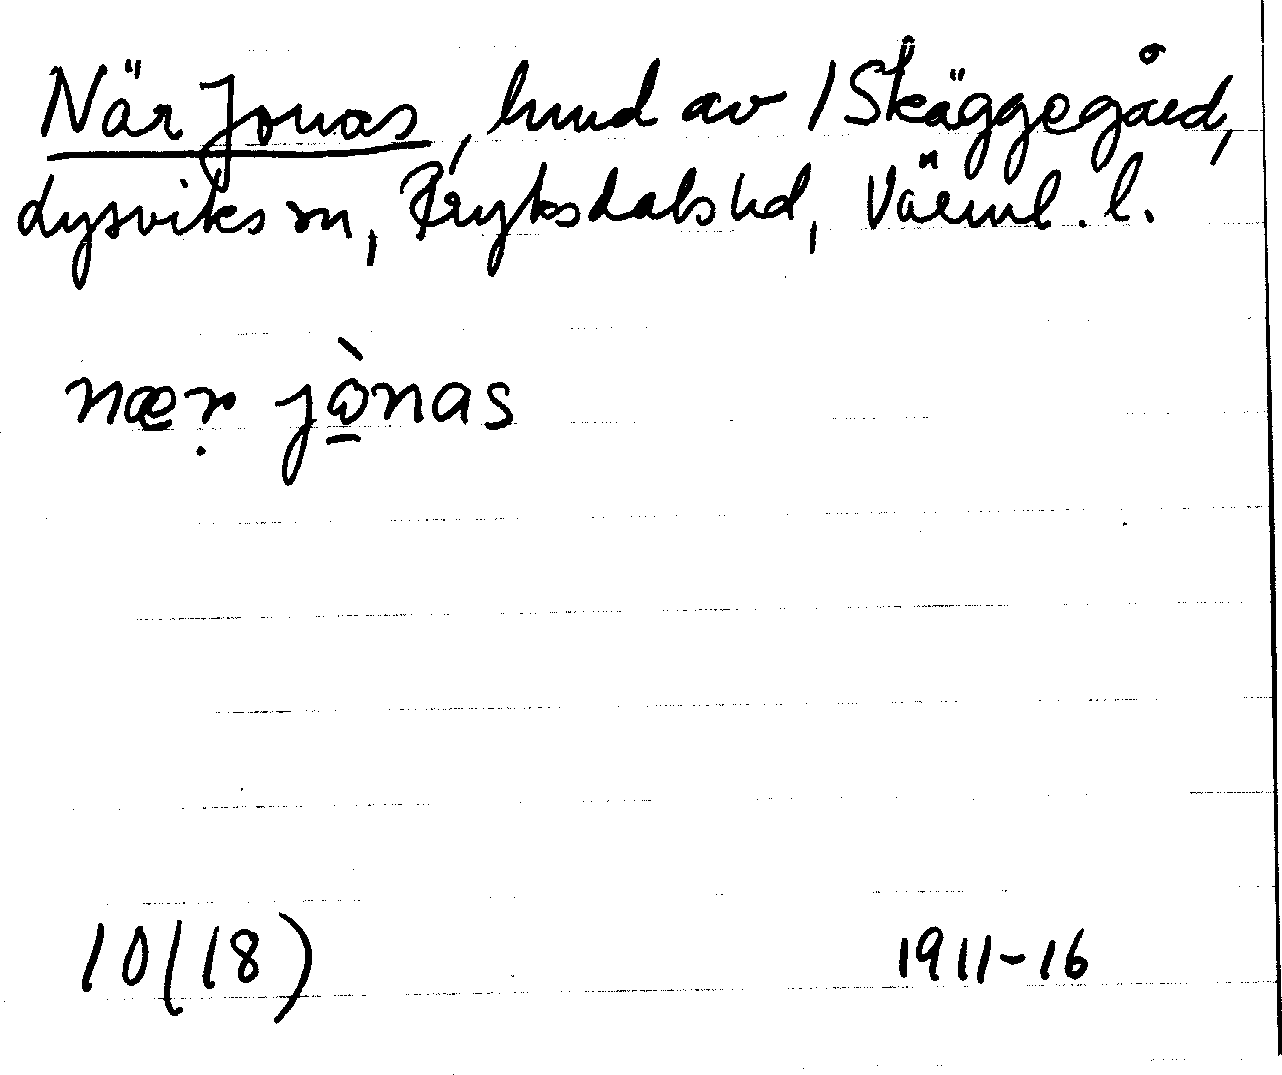 När Jonas, hmd av 1 Skäggegård,
Lysviks sn, Fryksdals hd, Värml. l.
nær jònas
10(18) 1911-16